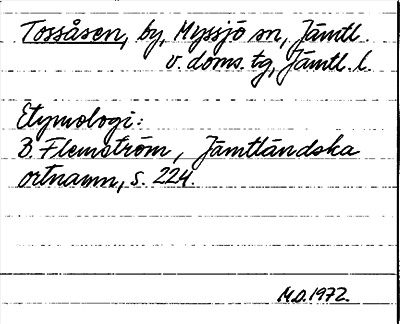 Tossåsen, by, Myssjö sn, Jämtl.
v. doms. tg, Jämtl. l.
Etymologi:
B. Flemström, Jämtländska
ortnamn, s. 224.
M.O. 1972.